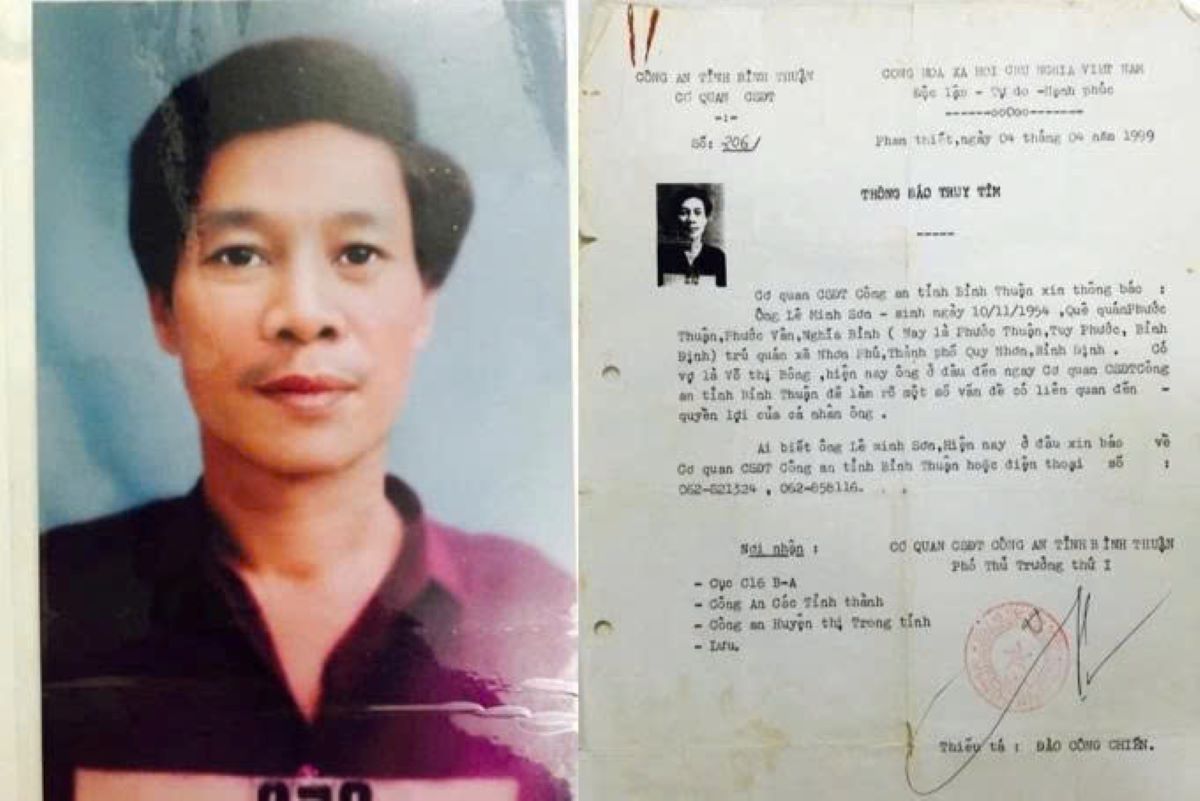 CÔNG AN TỈNH BÌNH THUẬN
CƠ QUAN CSĐT
-:-
Số: 206/
CONG HOA XA HOI CHU NGHIA VIET NAM
Độc lập - Tự do -Hạnh phúc
------ooOoo-------
Phan thiết,ngày 04 tháng 04 năm 1999
THÔNG BÁO TRUY TÌM
-----
Cơ quan CSĐT Công an tỉnh Bình Thuận xin thông báo :
Ông Lê Minh Sơn - sinh ngày 10/11/1954 ,Quê quánPhước
Thuận,Phước Vân,Nghĩa Bình ( Nay là Phước Thuận,Tuy Phước, Bình
Định) trú quán xã Nhơn Phú,Thành phố Quy Nhơn,Bình Định . Có
vợ là Võ thị Bông ,hiện nay ông ở đâu đến ngay Cơ quan CSĐTCông
an tỉnh Bình Thuận để làm rõ một số vấn đề có liên quan đến -
quyền lợi của cá nhân ông .
Ai biết ông Lê minh Sơn,Hiện nay ở đâu xin báo về
Cơ quan CSĐT Công an tỉnh Bình Thuận hoặc điện thoại số :
062-821324 , 062-858116.
Nơi nhận :
- Cục C16 B-A
- Công An Các Tỉnh thành
- Công an Huyện thị Trong tỉnh
- Lưu.
CƠ QUAN CSĐT CÔNG AN TỈNH BÌNH THUẬN
Phó Thủ Trưởng thứ I
Thiếu tá : ĐÀO CÔNG CHIẾN.